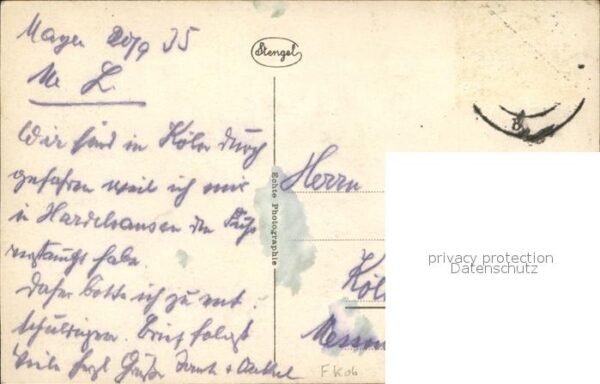 Mayen 20/9 35
M. L.
Wir sind in Köln durch
gefahren weil ich mir
in Hardehausen den Fuß
verstaucht habe.
Daher bitte ich zu ent-
schuldigen. Brief folgt
Viele herzl Grüße Tante + Onkel
Stengel
Echte Photographie
Herrn
Köl
Messin
F Kob
B
privacy protection
Datenschutz